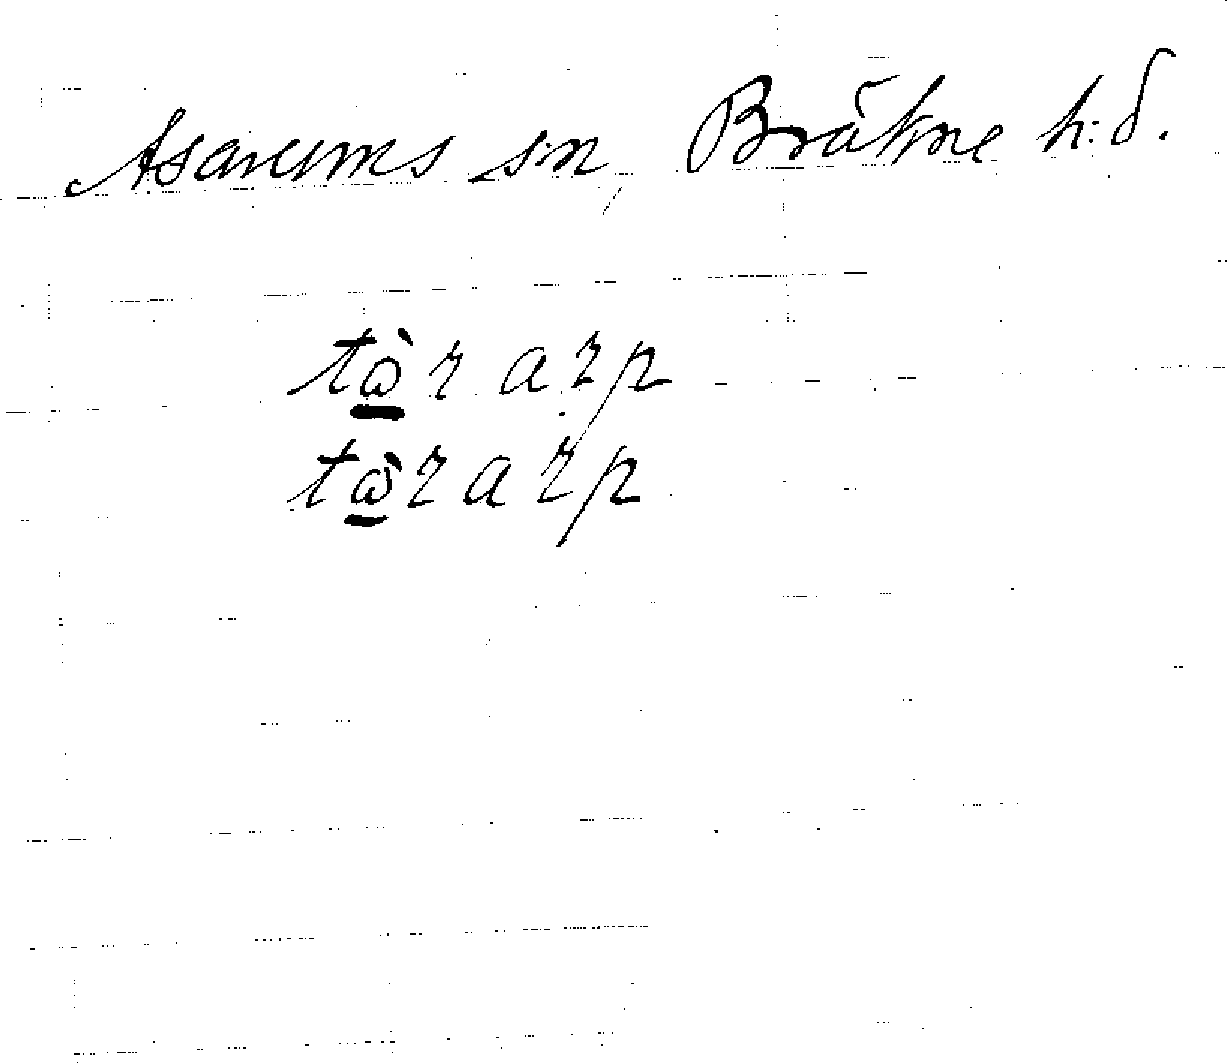 Asarums sn, Bräkne h:d.
tὼ̲r arp
tὼ̲rarp